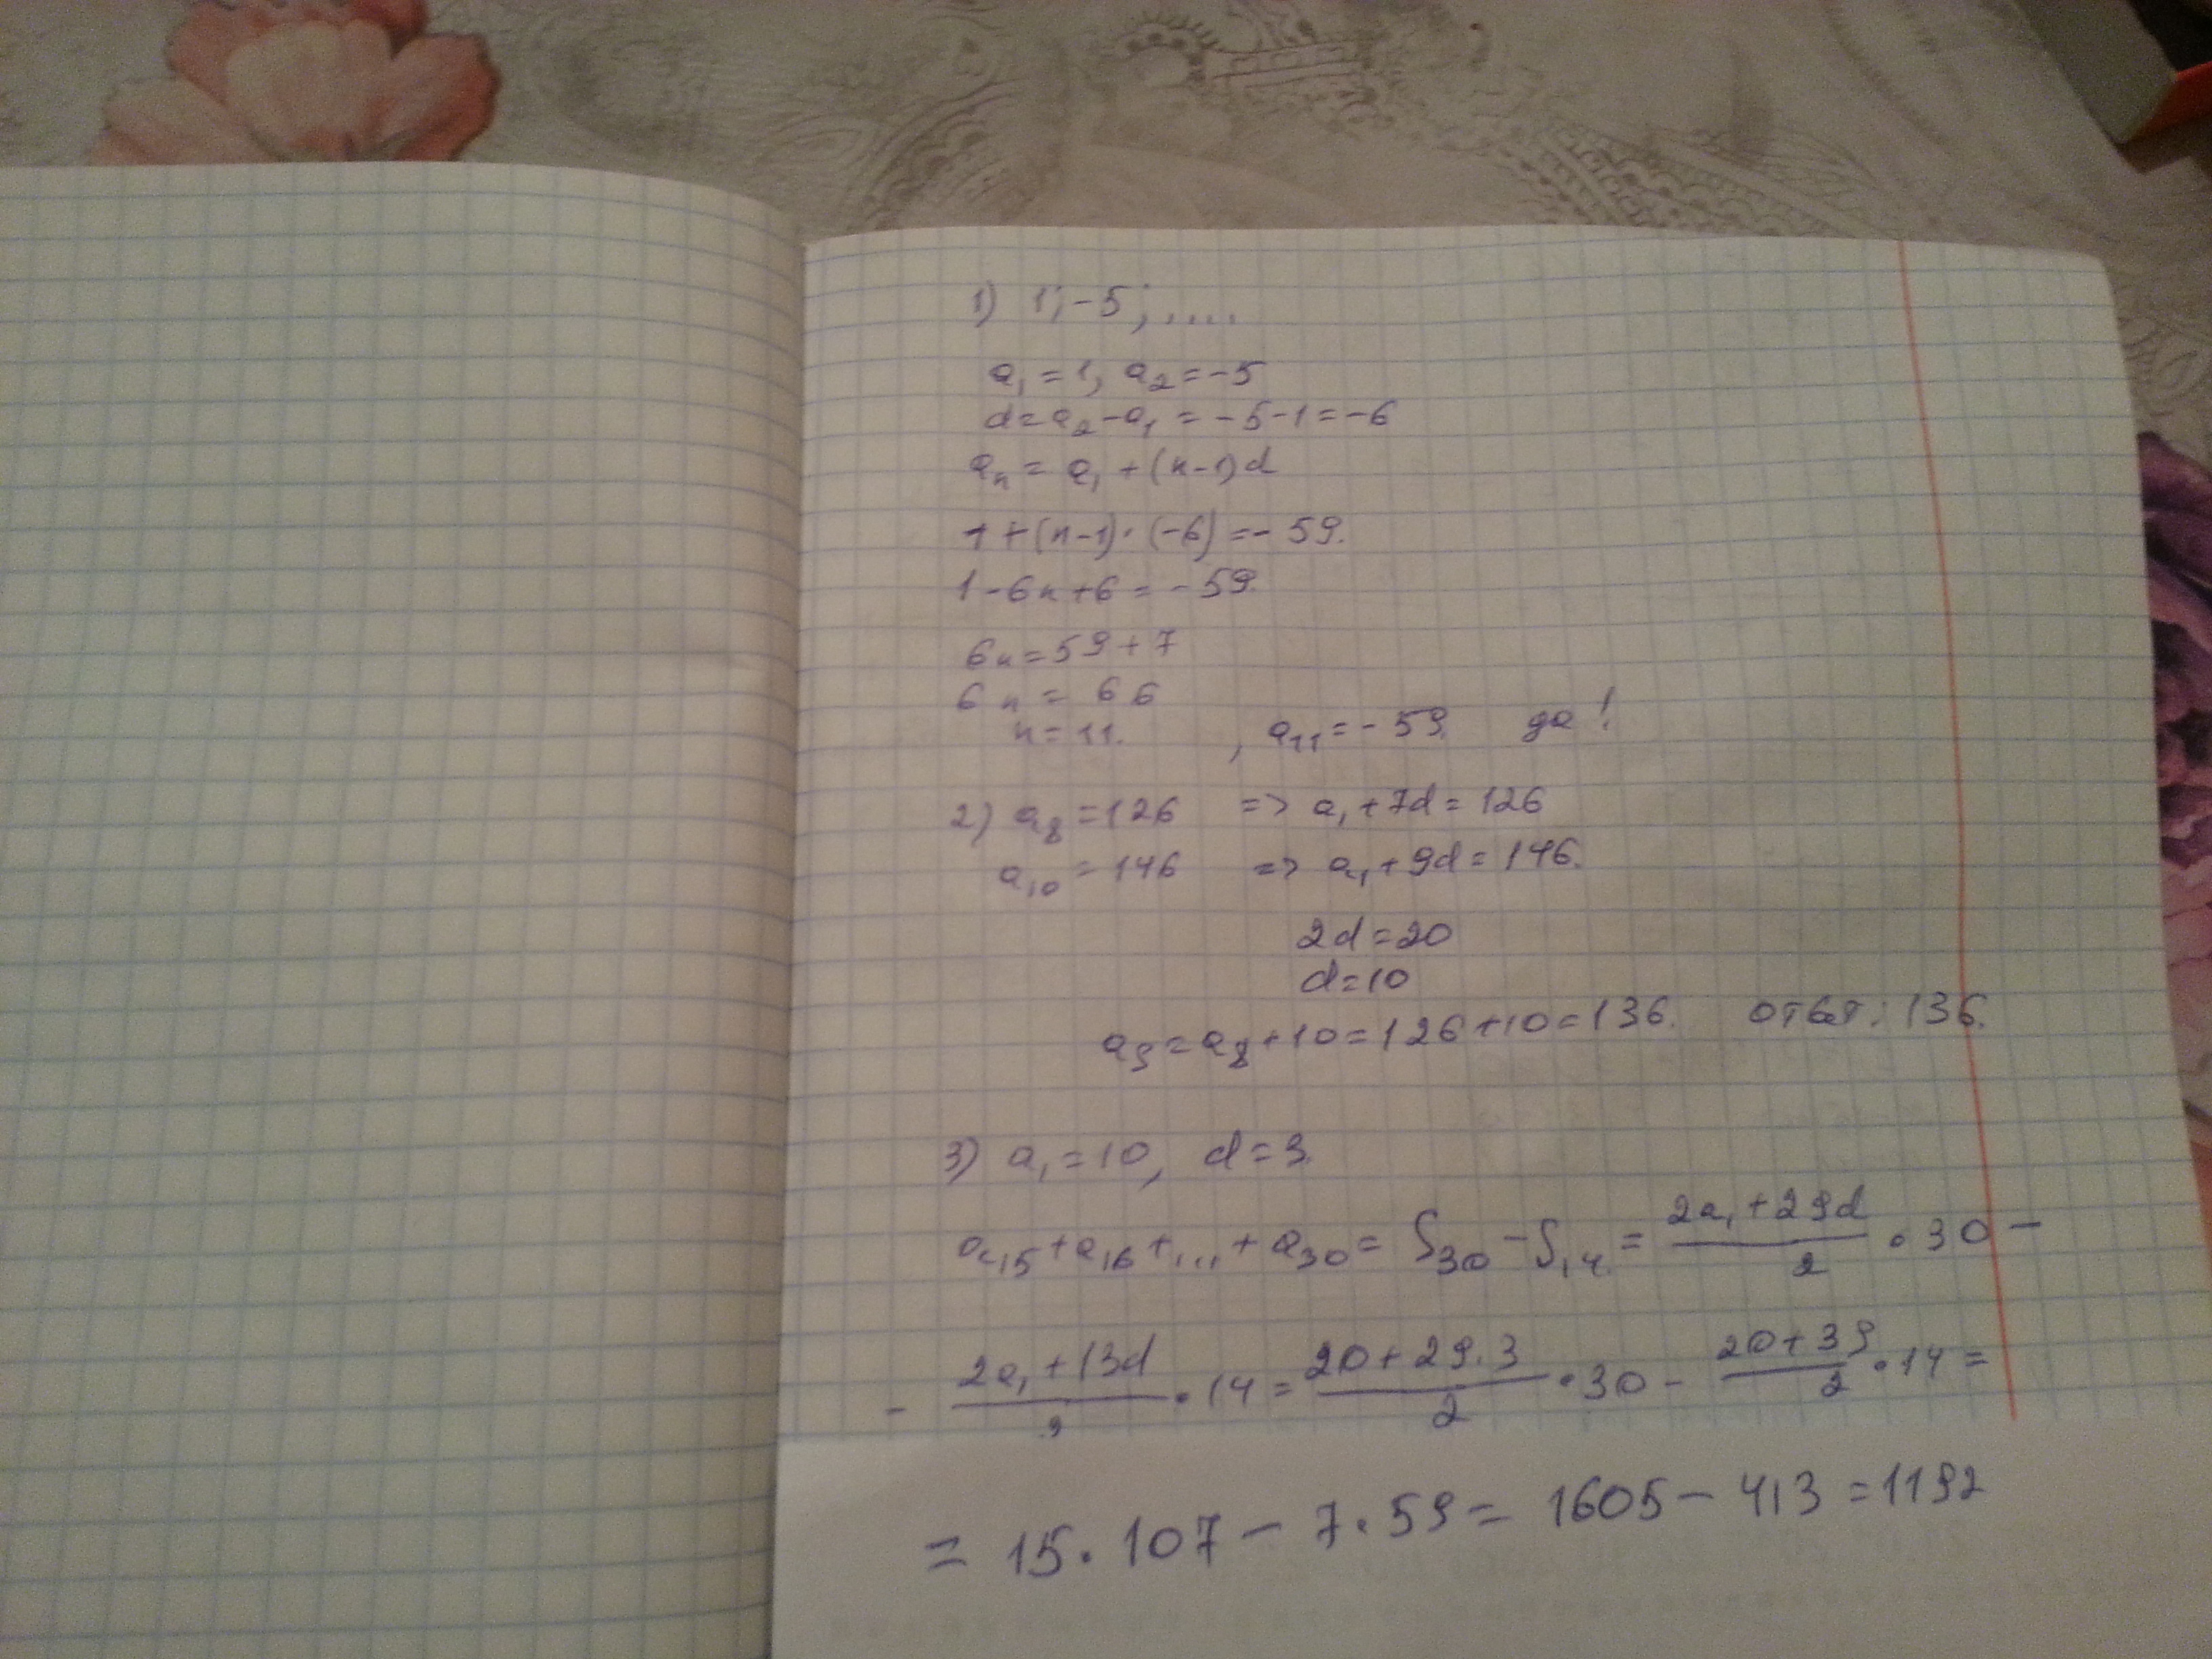 1) 1; -5; ....
a₁ = 1, a₂ = -5
d = a₂ - a₁ = -5 - 1 = -6
aₙ = a₁ + (n-1)d
1 + (n-1)·(-6) = -59.
1 - 6n + 6 = -59.
6n = 59 + 7
6n = 66
n = 11. , a₁₁ = -59. да!
2) a₈ = 126 => a₁ + 7d = 126
a₁₀ = 146 => a₁ + 9d = 146.
2d = 20
d = 10
a₉ = a₈ + 10 = 126 + 10 = 136. ответ: 136.
3) a₁ = 10, d = 3.
a₁₅ + a₁₆ + ... + a₃₀ = S₃₀ - S₁₄. = (2a₁ + 29d)/2 · 30 -
- (2a₁ + 13d)/2 · 14 = (20 + 29.3)/2 · 30 - (20 + 39)/2 · 14 =
= 15 · 107 - 7 · 59 = 1605 - 413 = 1192